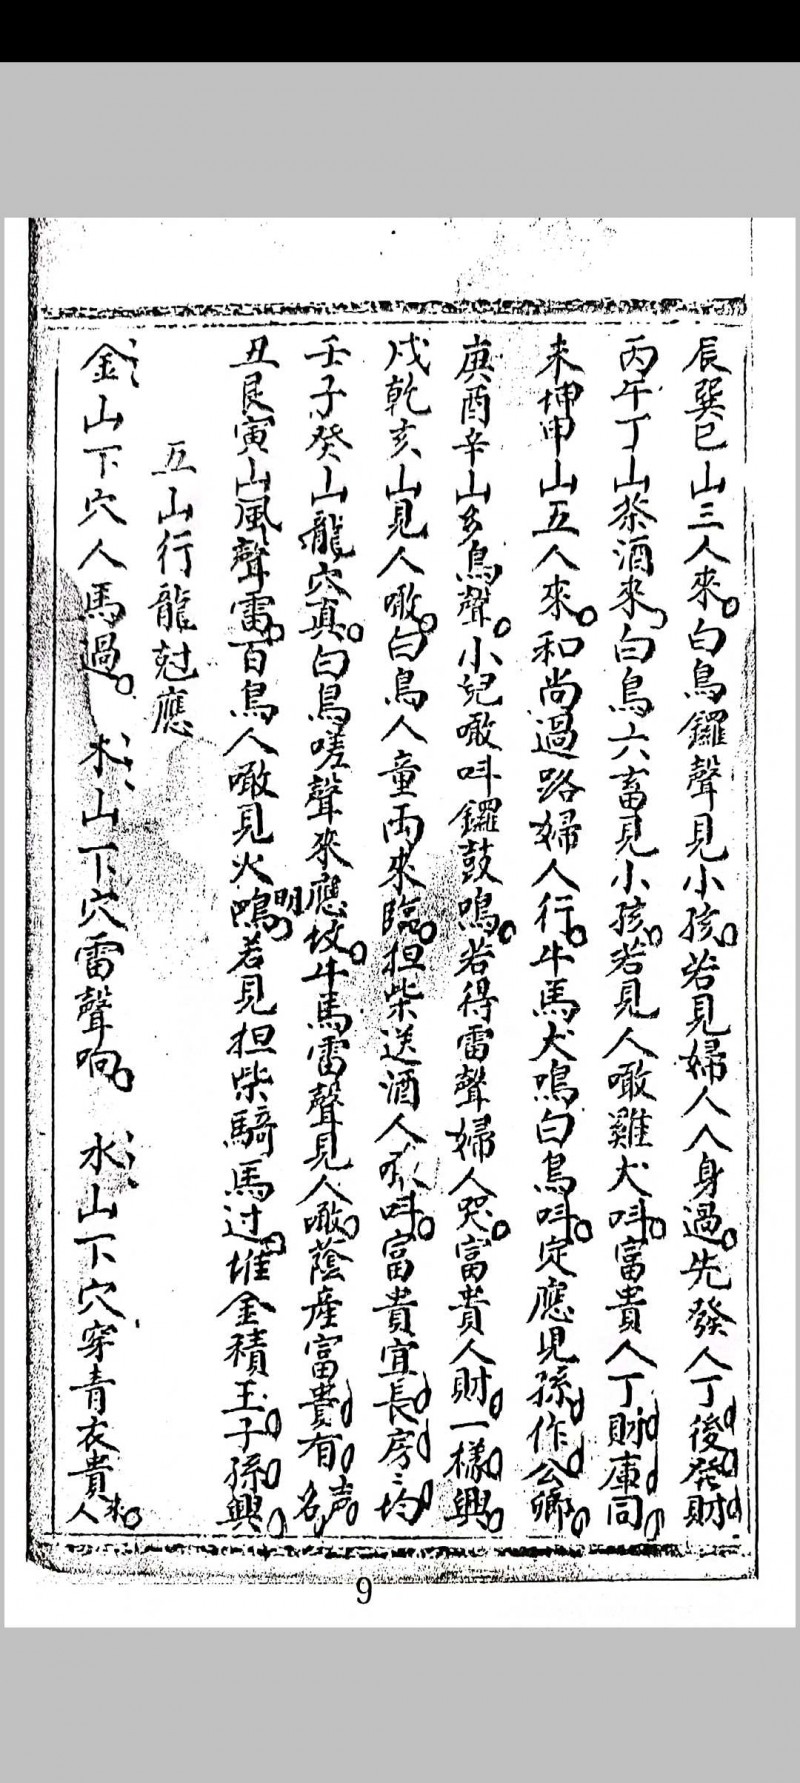 辰巽巳山三人來白鳥鑼聲見小孩若見婦人人身過先發人丁後發財
丙午丁山茶酒來白鳥六畜見小孩若見人噉雞犬呌富貴人丁財庫同
未坤申山五人來和尚過路婦人行牛馬犬鳴白鳥呌定應兒孫作公卿
庚酉辛山多鳥聲小兒噉呌鑼鼓鳴若得雷聲婦人哭富貴人財一樣興
戍乾亥山見人噉白鳥人童両來臨担柴送酒人呌富貴宜長房〻均
壬子癸山龍穴真白鳥嗟聲來應坟牛馬雷聲見人噉蔭産富貴有名声
丑艮寅山風聲雷百鳥人噉見火鳴明若見担柴騎馬过堆金積玉子孫興
五山行龍尅應
金山下穴人馬過 木山下穴雷聲响 水山下穴穿青衣貴人來
9